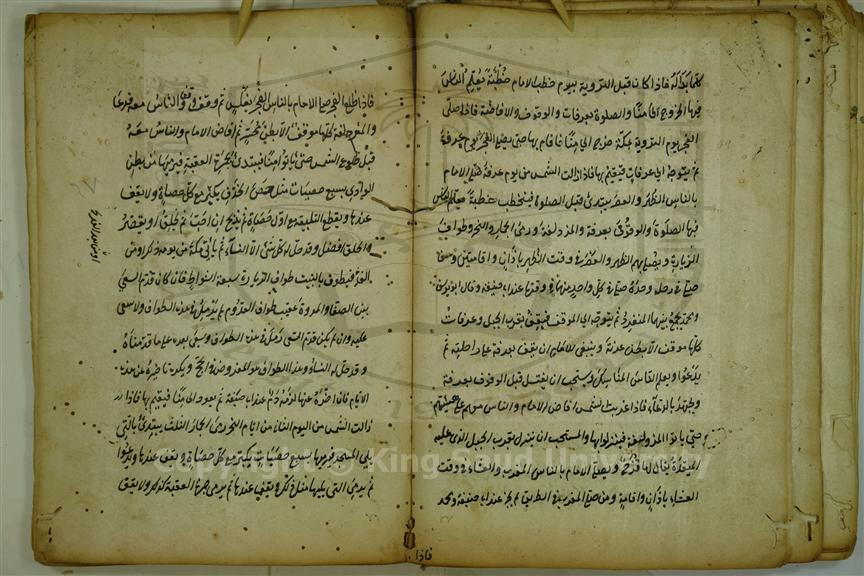 كلما بدا له فاذا كان قبل التروية بيوم خطب الامام خطبة يعلم الناس
فيها الخروج الى منا والصلوة بعرفات والوقوف والافاضة فاذا صلى
الفجر يوم التروية بمكة خرج الى منا فاقام بها حتى يصلى الفجر يوم عرفة
ثم يتوجه الى عرفات فيقيم بها فاذا زالت الشمس من يوم عرفة صلى الامام
بالناس الظهر والعصر يبتدئ قبل الصلوة فيخطب خطبة يعلم الناس
فيها الصلوة والوقوف بعرفة والمزدلفة ورمى الجمار والنحر وطواف
الزيارة ويصلى بهم الظهر والعصر فى وقت الظهر باذان واقامتين ومن
صلى فى رحله وحده صلى كل واحد منهما فى وقتها عند ابى حنيفة وقال ابو يوسف
ومحمد يجمع بينهما المنفرد ثم يتوجه الى الموقف فيقف بقرب الجبل وعرفات
كلها موقف الا بطن عرنة وينبغى للامام ان يقف بعرفة على راحلته ثم
يدعوا ويعلم الناس المناسك ويستحب ان يغتسل قبل الوقوف بعرفة
ويجتهد بالدعاء فاذا غربت شمس افاض الامام والناس معه على هينتهم
حتى ياتوا المزدلفة فينزلوا بها والمستحب ان ينزل بقرب الجبل الذى عليه
الميقدة يقال لها قزح ويصلى الامام بالناس المغرب والعشاء فى وقت
العشاء باذان واقامة ومن صلى المغرب فى الطريق لم يجز عند ابى حنيفة ومحمد
فاذا
فاذا طلع الفجر صلى الامام بالناس الفجر بغلس ثم وقف ووقف الناس معه فدعا
والمزدلفة كلها موقف الا بطن محسر ثم افاض الامام والناس معه
قبل طلوع الشمس حتى ياتوا منا فيبتدئ بجمرة العقبة فيرميها من بطن
الوادى بسبع حصيات مثل حصى الخذف يكبر مع كل حصاة ولا يقف
عندها ويقطع التلبية مع اول حصاة ثم يذبح ان احب ثم يحلق او يقصر
والحلق افضل وقد حل له كل شئ الا النساء ثم ياتى مكة من يومه ذلك او من
الغد فيطوف بالبيت طواف الزيارة سبعة اشواط فان كان قدم السعى
بين الصفا والمروة عقيب طواف القدوم لم يرمل فى هذا الطواف ولا سعى
عليه وان لم يكن قدم السعى رمل فى هذا الطواف وسعى بعده على ما قدمناه
وقد حل له النساء وهذا الطواف هو المفروض فى الحج ويكره تاخيره عن هذه
الايام فان اخره عنها لزمه دم عند ابى حنيفة ثم يعود الى منا فيقيم بها فاذا
زالت الشمس من اليوم الثانى من ايام النحر رمى الجمار الثلث يبتدئ بالتى
يلى المسجد فيرميها بسبع حصيات يكبر مع كل حصاة ويقف عندها ويدعوا
ثم يرمى التى يليها مثل ذلك ويقف عندها ثم يرمى جمرة العقبة كذلك ولا يقف
Copyright © King Saud University